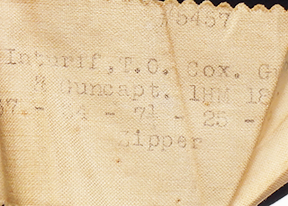 5457
Inturif,T.O. Cox. G
Guncapt. 1HM 18
7 - 64 - 71 - 25 -
Zipper